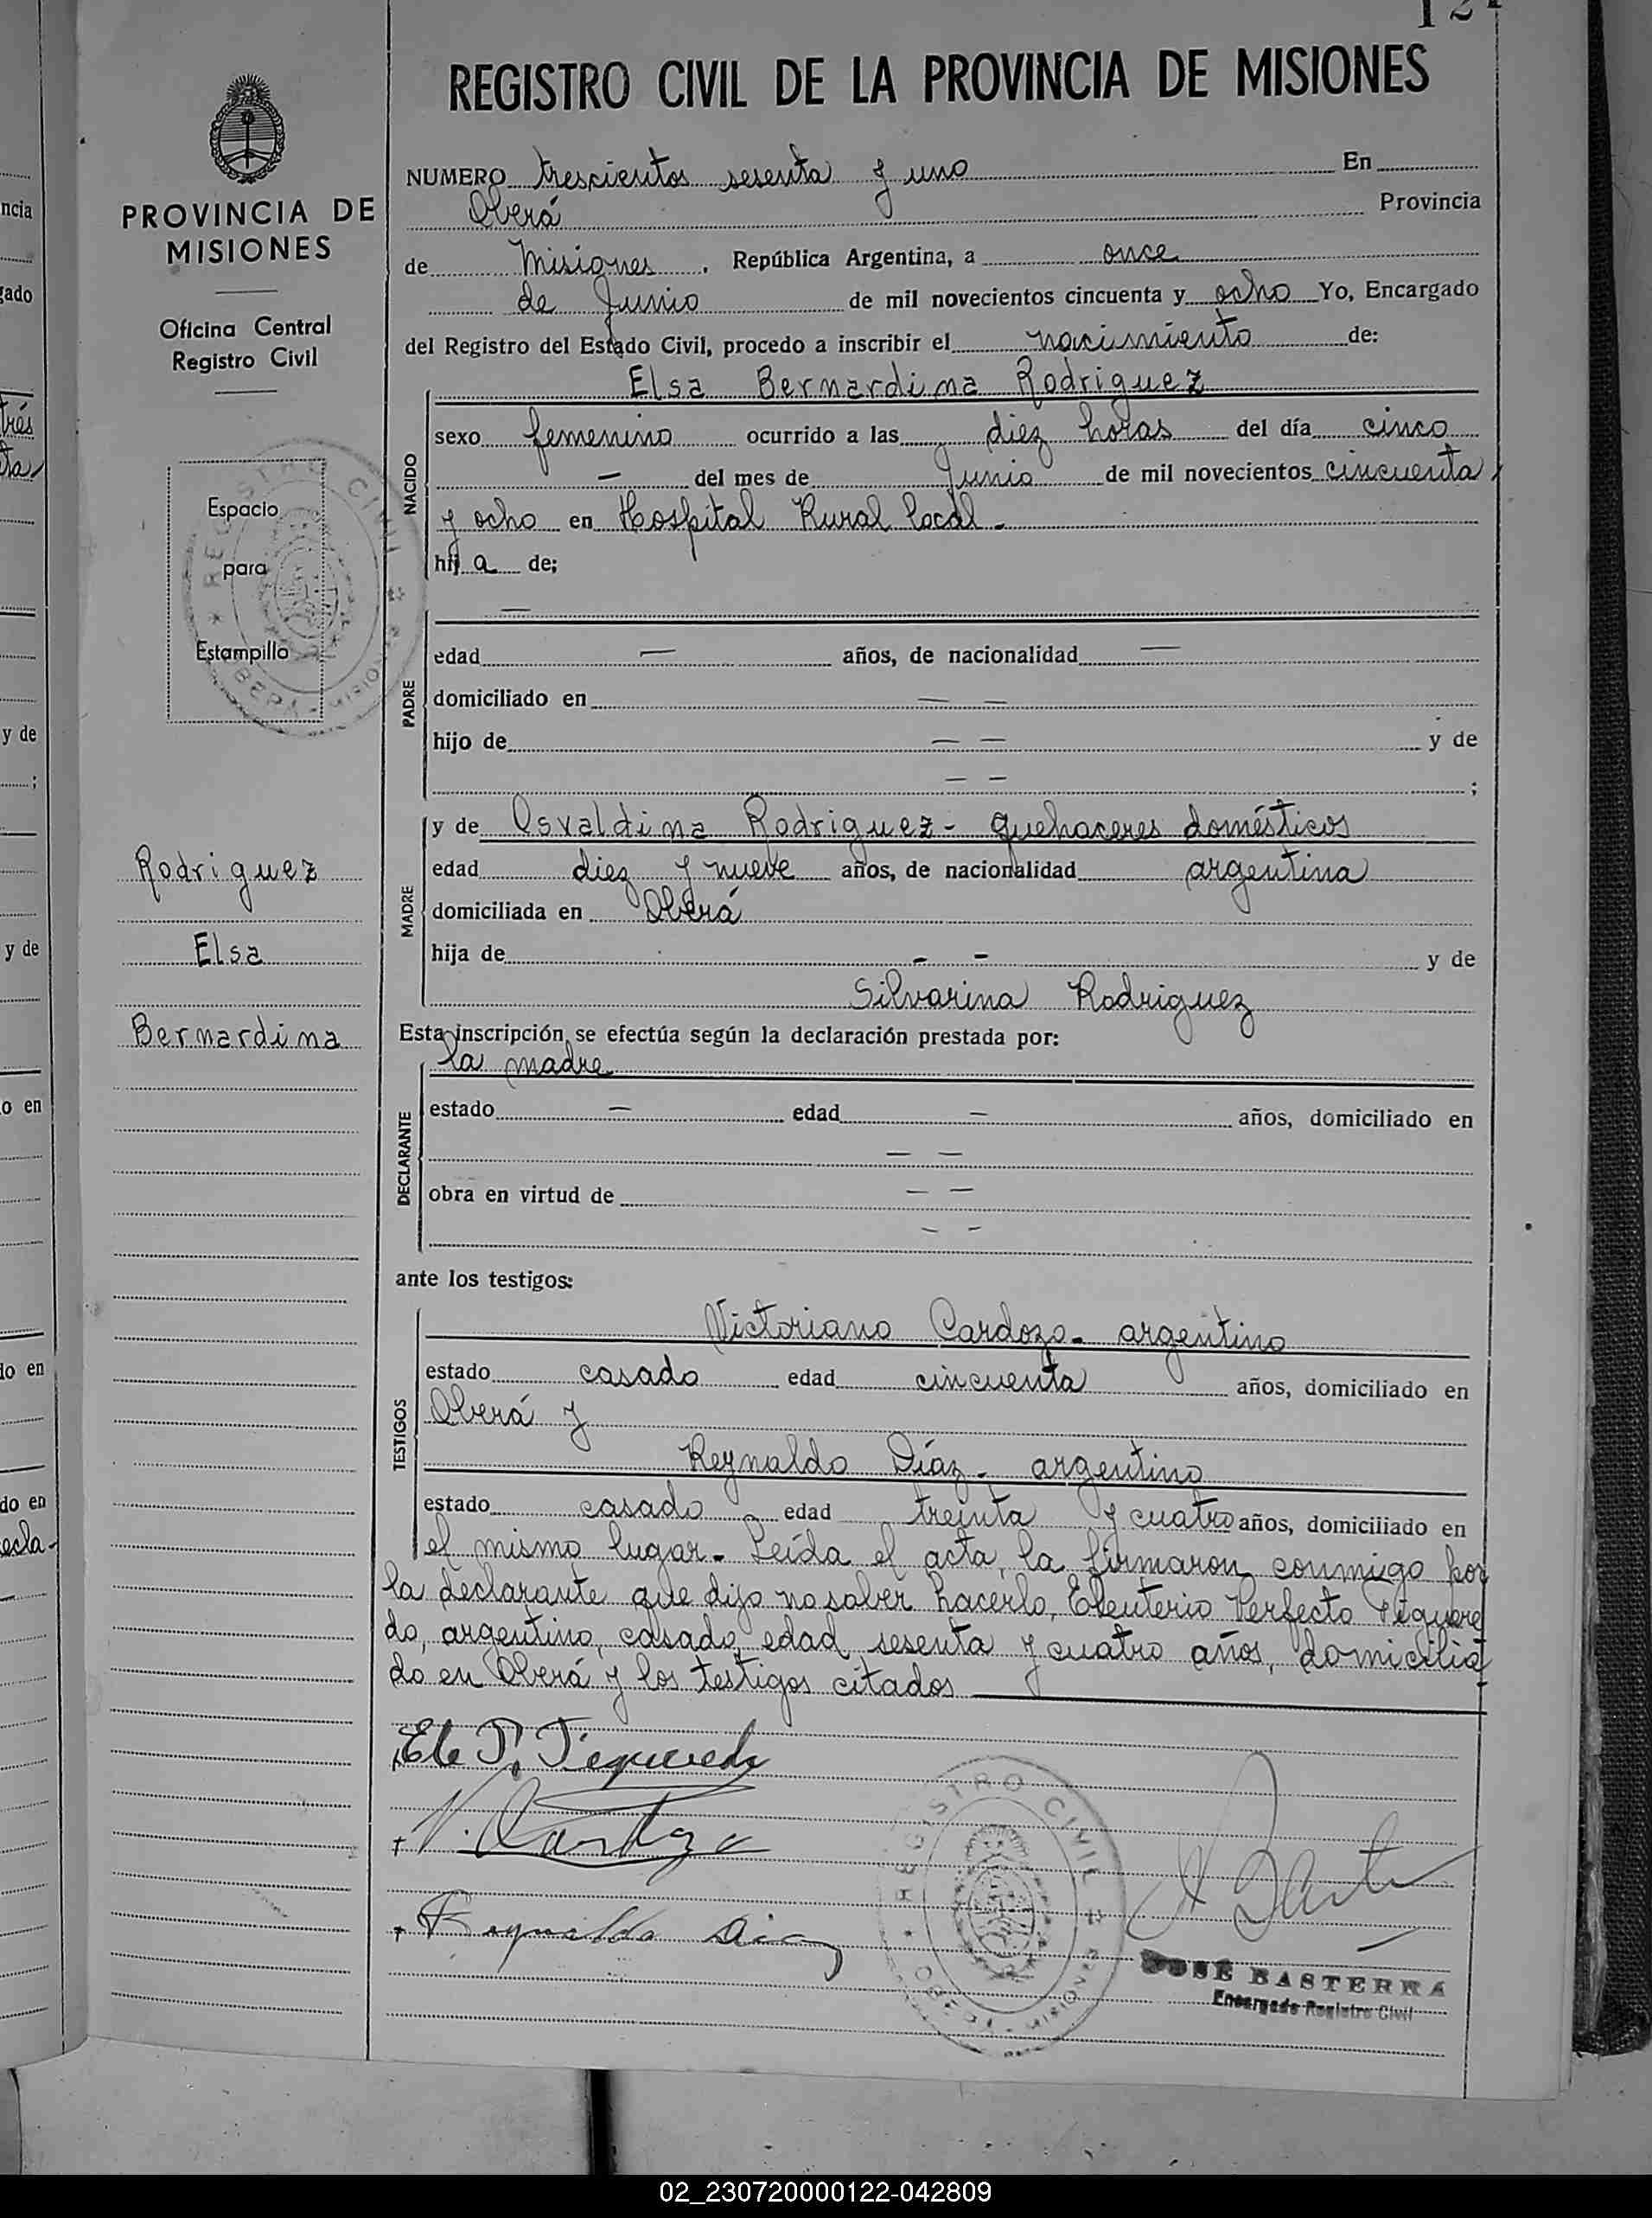 REGISTRO CIVIL DE LA PROVINCIA DE MISIONES
PROVINCIA DE
MISIONES
Oficina Central
Registro Civil
Espacio
para
Estampilla
Rodriguez
Elsa
Bernardina
NUMERO trescientos sesenta y uno En
Oberá Provincia
de Misiones, República Argentina, a once
de Junio de mil novecientos cincuenta y ocho Yo, Encargado
del Registro del Estado Civil, procedo a inscribir el nacimiento de:
NACIDO
Elsa Bernardina Rodriguez
sexo femenino ocurrido a las diez horas del día cinco
— del mes de Junio de mil novecientos cincuenta
y ocho en Hospital Rural local.-
hija de;
PADRE
—
edad — años, de nacionalidad —
domiciliado en — —
hijo de — — y de
— — ;
MADRE
y de Osvaldina Rodriguez - quehaceres domésticos
edad diez y nueve años, de nacionalidad argentina
domiciliada en Oberá
hija de - - y de
Silvarina Rodriguez
Esta inscripción se efectúa según la declaración prestada por:
DECLARANTE
la madre
estado — edad — años, domiciliado en
— —
obra en virtud de — —
— —
ante los testigos:
TESTIGOS
Victoriano Cardozo - argentino
estado casado edad cincuenta años, domiciliado en
Oberá y
Reynaldo Díaz - argentino
estado casado edad treinta y cuatro años, domiciliado en
el mismo lugar.- Leída el acta, la firmaron conmigo por
la declarante que dijo no saber hacerlo, Eleuterio Perfecto Figuere
do, argentino, casado, edad sesenta y cuatro años, domicilia
do en Oberá y los testigos citados
Ele P. Figueredo
V. Cardozo
Reynaldo Diaz
REGISTRO CIVIL
MISIONES
JOSÉ BASTERRA
Encargado Registro Civil
02_230720000122-042809